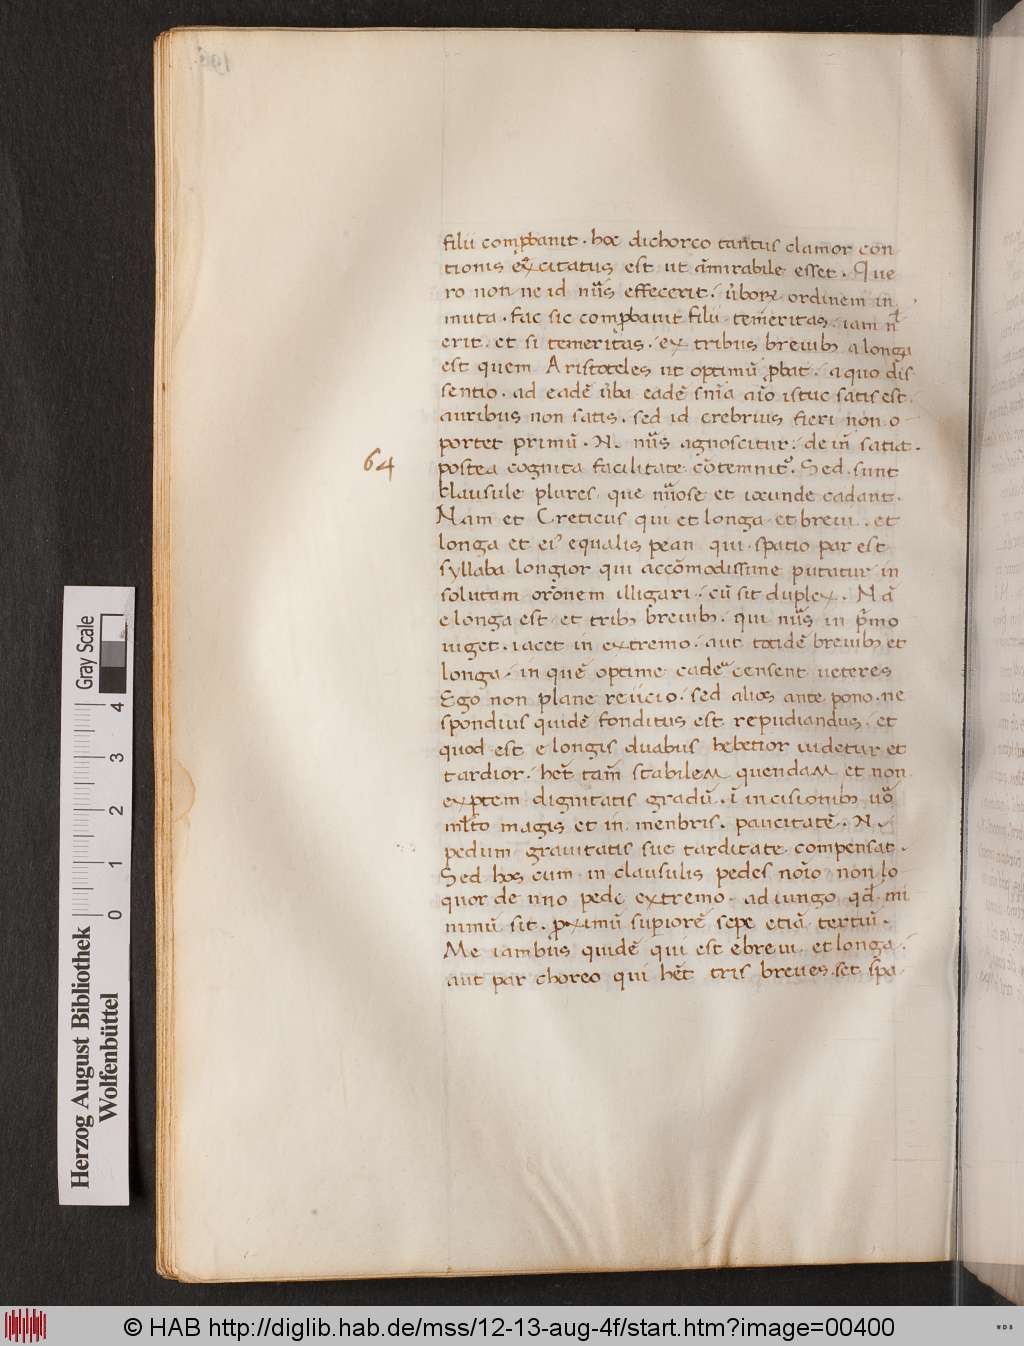 filii com ꝓbauit . hoc dichoreo tantus clamor con
tionis excitatus est ut ãmirabile esset . Que
ro non ne id nũs effecerit . ũboꝝ ordinem in
muta . fac sic com ꝓbauit filii temeritas . iam n̄l
erit . et si temeritas . ex tribus breuibꝫ a longa
est quem Aristoteles ut optimũ ꝓbat . a quo dis
sentio . ad eadẽ ũba eadẽ snĩa aĩo istuc satis est .
auribus non satis . sed id crebrius fieri non o
portet primũ . N . nũs agnoscitur . de iñ satiat .
64
postea cognita facilitate cõtemnit᷒ . Sed sunt
clausule plures que nũose et iocunde cadant .
Nam et Creticus qui et longa et breui . et
longa et ei᷒ equalis pean qui spatio par est
syllaba longior qui accõmodissime putatur in
solutam orõnem illigari . cũ sit duplex . Nã
e longa est et tribꝫ breuibꝫ . qui nũs in p̃mo
uiget . iacet in extremo . aut totidẽ breuibꝫ et
longa . in quẽ optime cadeᷓ censent ueteres
Ego non plane reiicio . sed alios ante pono . ne
spondius quidẽ fonditus est repudiandus . et
quod est e longis duabus hebetior uidetur et
tardior . hẽt tam̃ stabilem quendam et non
exꝑtem dignitatis gradũ . ĩ incisionibꝫ uõ
ml̃to magis et in menbris . paucitatẽ . N .
pedum grauitatis sue tarditate compensat .
Sed hos cum in clausulis pedes noĩo non lo
quor de uno pede extremo . ad iungo qd̃ mi
nimũ sit . ꝓximũ suꝑiorẽ sepe etiã tertiũ .
Me iambus quidẽ qui est ebreui et longa .
aut par choreo qui hẽt tris breues . set spa
Gray Scale
0 1 2 3 4
Herzog August Bibliothek
Wolfenbüttel
© HAB http://diglib.hab.de/mss/12-13-aug-4f/start.htm?image=00400